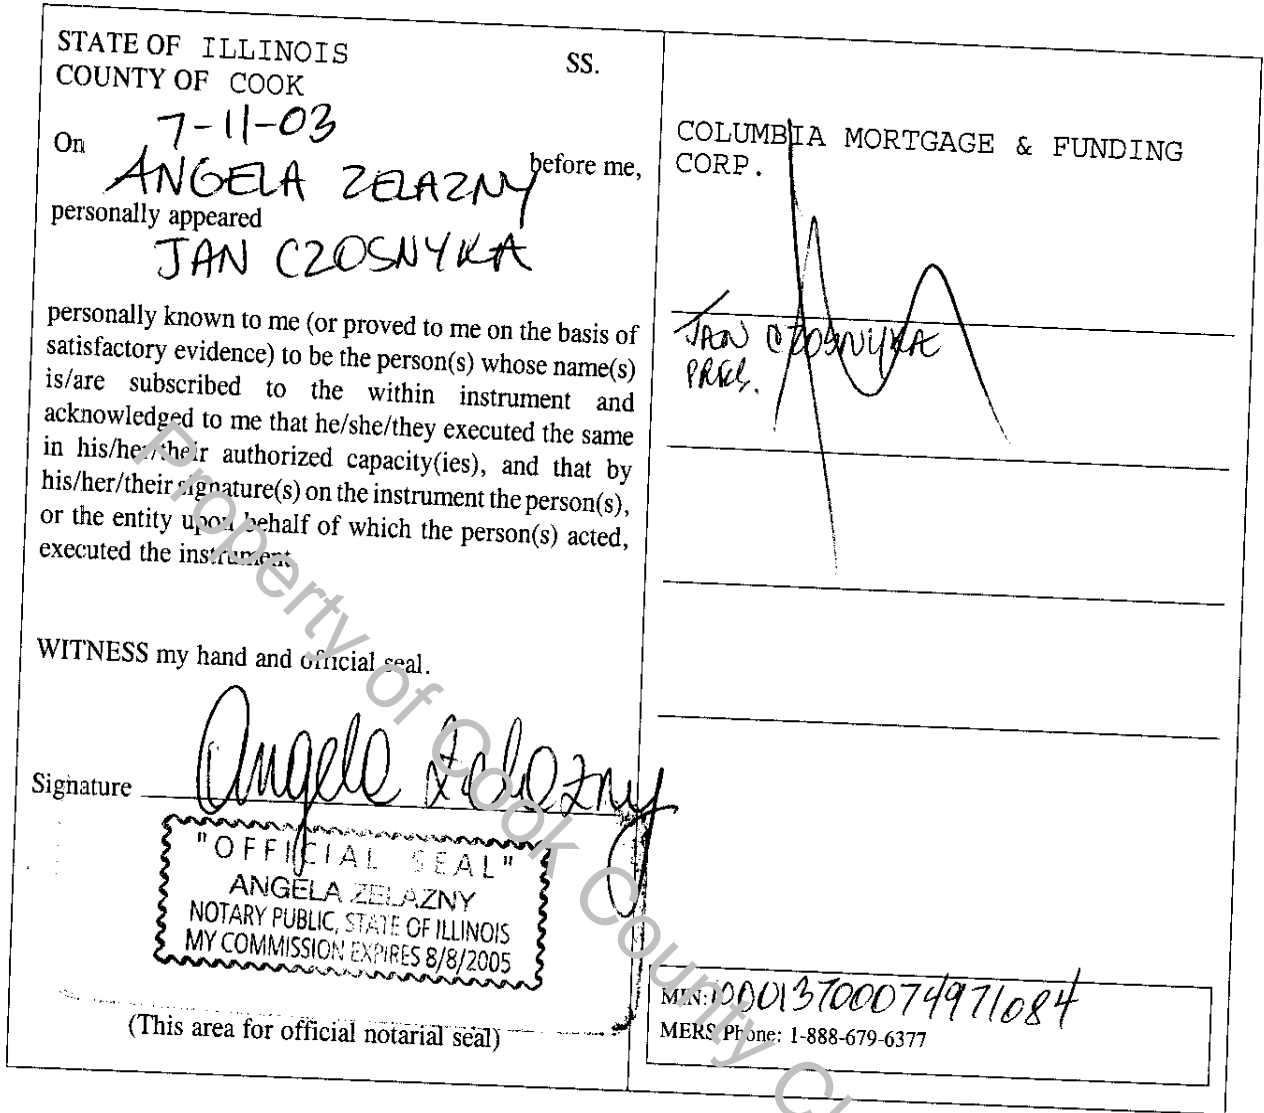 STATE OF ILLINOIS SS.
COUNTY OF COOK
On 7-11-03
ANGELA ZELAZNY before me,
personally appeared
JAN CZOSNYKA
personally known to me (or proved to me on the basis of
satisfactory evidence) to be the person(s) whose name(s)
is/are subscribed to the within instrument and
acknowledged to me that he/she/they executed the same
in his/her/their authorized capacity(ies), and that by
his/her/their signature(s) on the instrument the person(s),
or the entity upon behalf of which the person(s) acted,
executed the instrument.
WITNESS my hand and official seal.
Signature Angela Zelazny
"OFFICIAL SEAL"
ANGELA ZELAZNY
NOTARY PUBLIC, STATE OF ILLINOIS
MY COMMISSION EXPIRES 8/8/2005
(This area for official notarial seal)
COLUMBIA MORTGAGE & FUNDING
CORP.
JAN CZOSNYKA
PRES.
MIN: 100013700074971084
MERS Phone: 1-888-679-6377
Property of Cook County